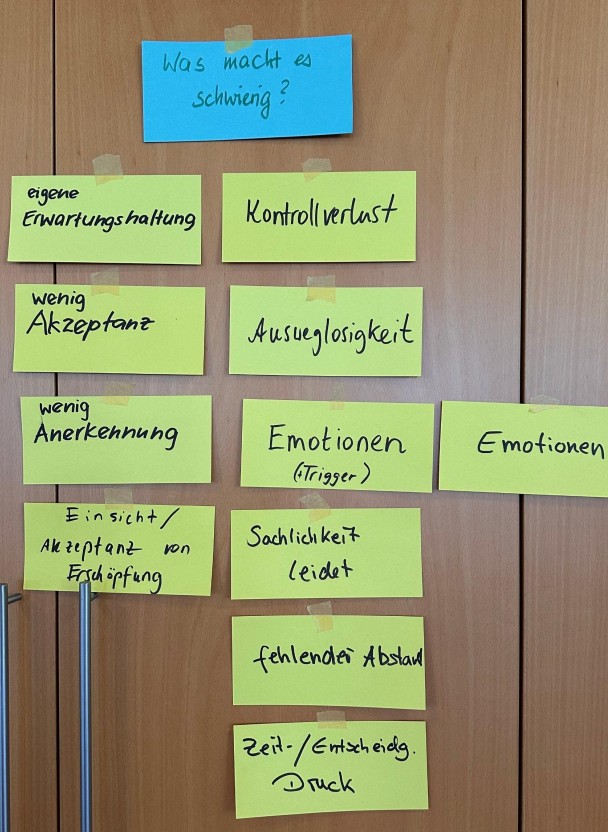 Was macht es
schwierig?
eigene
Erwartungshaltung
wenig
Akzeptanz
wenig
Anerkennung
Einsicht/
Akzeptanz von
Erschöpfung
Kontrollverlust
Ausweglosigkeit
Emotionen
(+Trigger)
Emotionen
Sachlichkeit
leidet
fehlender Abstand
Zeit-/Entscheidg.
Druck